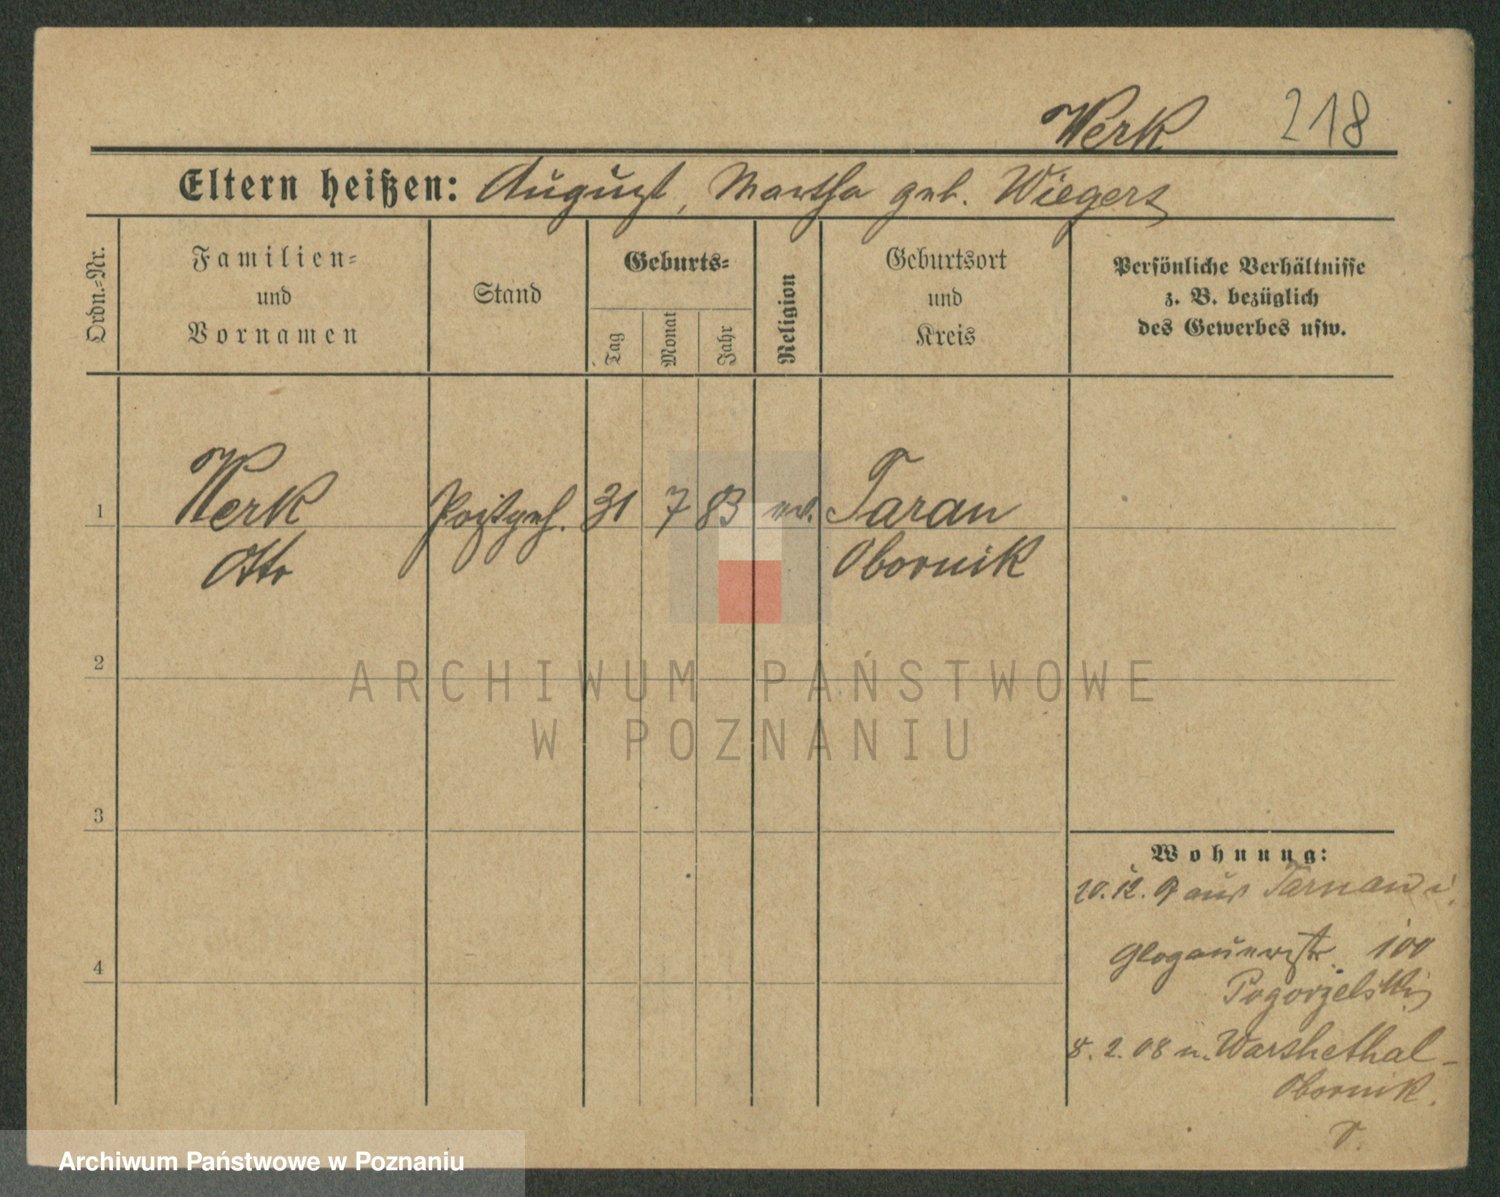 Werk 218
Eltern heißen: August, Martha geb. Wiegers
Ordn.-Nr.
Familien-
und
Vornamen
Stand
Geburts-
Tag
Monat
Jahr
Religion
Geburtsort
und
Kreis
Persönliche Verhältnisse
z. B. bezüglich
des Gewerbes usw.
1 Werk Postgeh. 31 7 83 ev. Taran
Otto Obornik
2
ARCHIWUM PAŃSTWOWE
W POZNANIU
3
Wohnung:
20. 12. aus
4
Glogauerstr. 100
Pogorzelski
8. 2. 08 n. Warthethal-
Obornik.
Archiwum Państwowe w Poznaniu